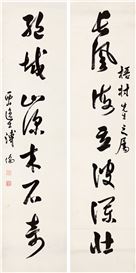 長風海立波瀾壯
梧村先生之屬
絕域山深木石奇
西山逸士溥儒